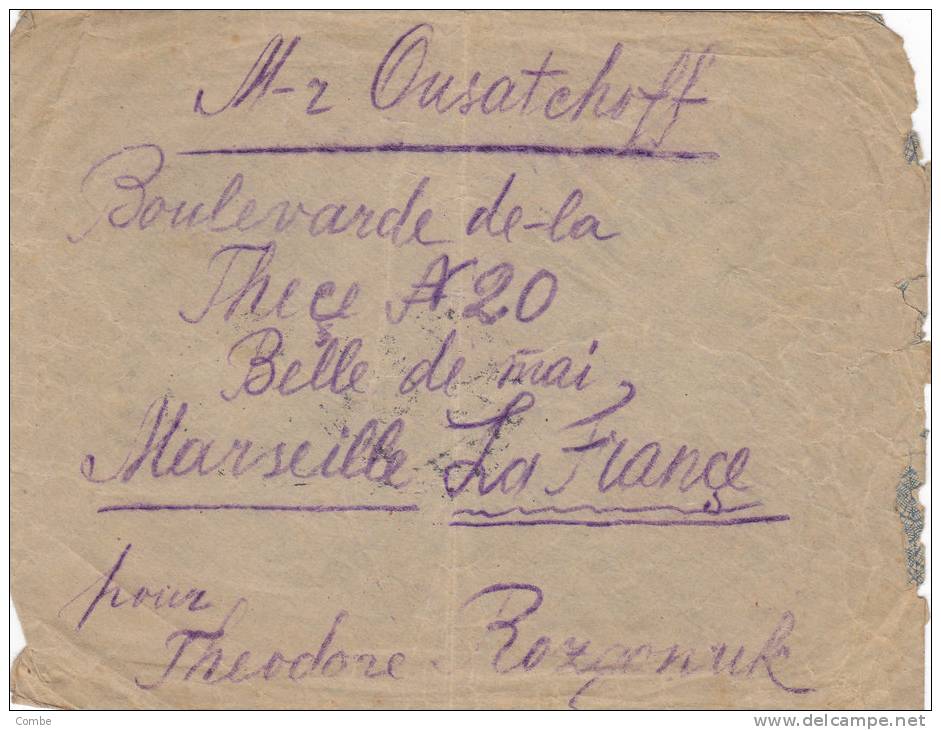 M-r Ousatchoff
Boulevarde de-la
Theçe N 20
Belle de mai,
Marseille La França
pour
Theodore Rozgonuk
Combe
www.delcampe.net